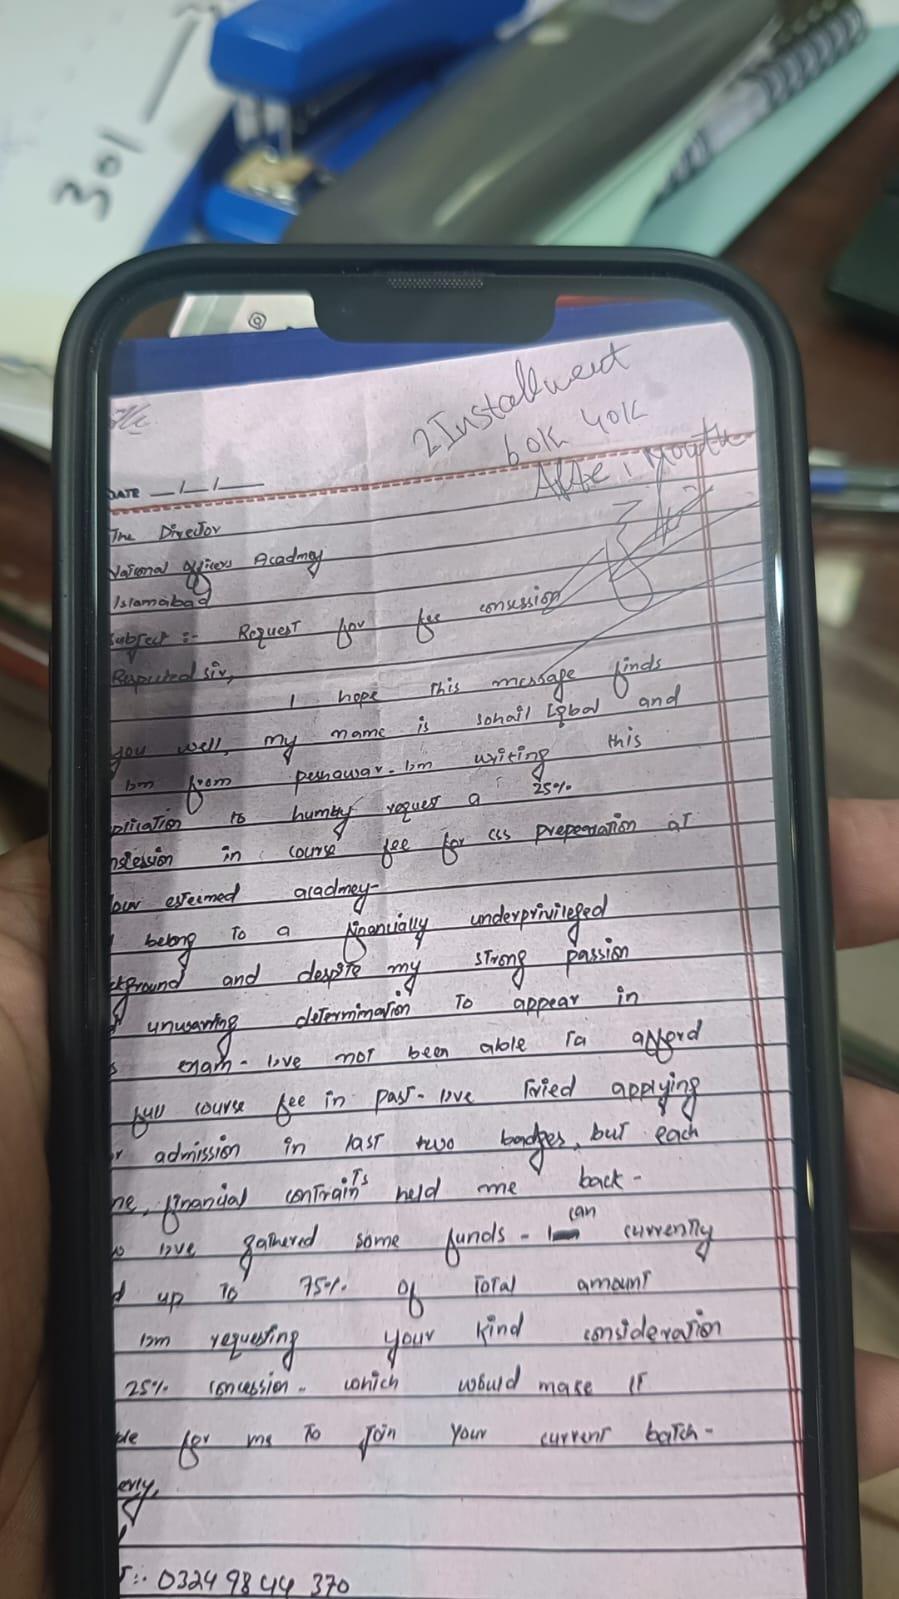 301
2 Installment
60K 40K
After 1 Month
DATE _/_/_
The Director
National Officers Acadmey
Islamabad
Subject :- Request for fee consession
Respected sir,
I hope this message finds
you well, my name is sohail Iqbal and
I'm from peshawar. I'm writing this
plication to humbly request a 25%
nsession in course fee for css preperation at
our esteimed acadmey-
belong to a financially underprivileged
ckground and despite my strong passion
unuwaring determination to appear in
s exam- I've not been able to afford
full course fee in past- I've tried applying
r admission in last two badges, but each
me, financial contraints held me back-
I've gathered some funds - I can currently
d up to 75% of total amount
I'm requesting your kind consideration
25% concession- which would make it
ble for me to join your current batch-
erly,
T:- 0324 98 44 370